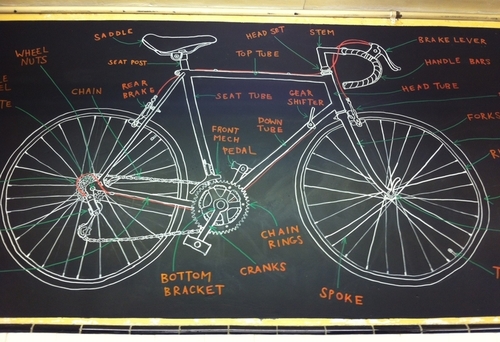 SADDLE
HEAD SET
STEM
BRAKE LEVER
WHEEL
NUTS
SEAT POST
TOP TUBE
HANDLE BARS
CHAIN
REAR
BRAKE
SEAT TUBE
GEAR
SHIFTER
HEAD TUBE
FORKS
FRONT
MECH
DOWN
TUBE
PEDAL
CHAIN
RINGS
BOTTOM
BRACKET
CRANKS
SPOKE